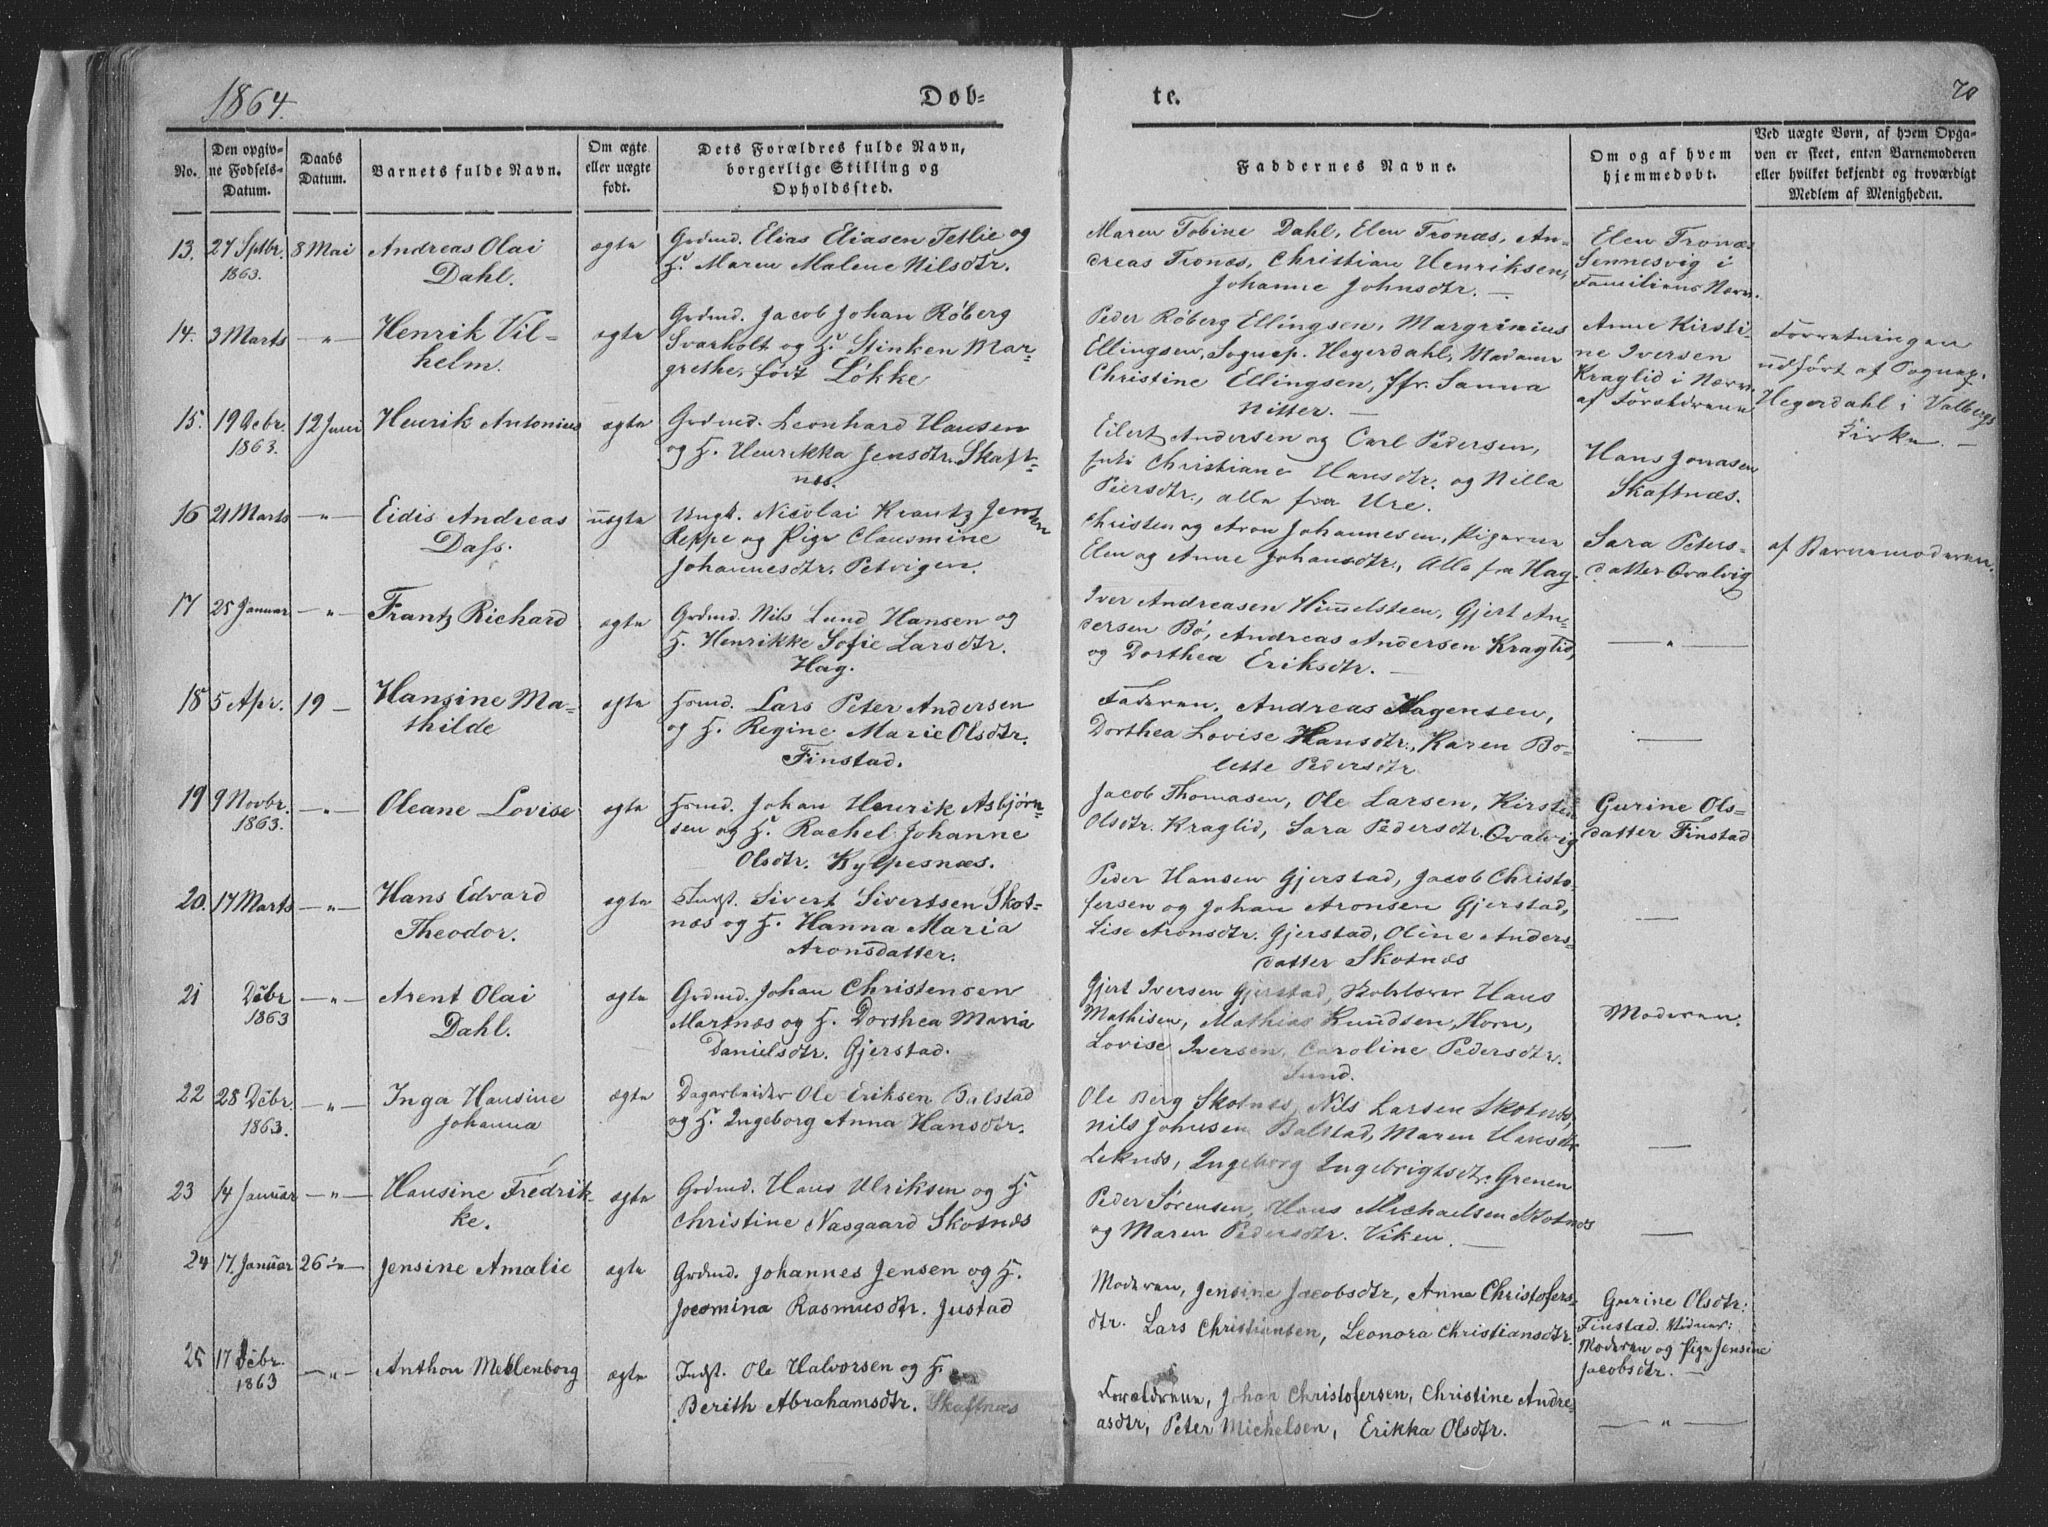 1864.
Døb-
te.
70
No.
Den opgiv-
ne Fødsels-
Datum.
Daabs
Datum.
Barnets fulde Navn.
Om ægte
eller uægte
født.
Dets Forældres fulde Navn,
borgerlige Stilling og
Opholdssted.
Faddernes Navne.
Om og af hvem
hjemmedøbt.
Ved uægte Børn, af hvem Opga-
ven er skeet, enten Barnemoderen
eller hvilket bekjendt og troværdigt
Medlem af Menigheden.
13. 27 Septbr. 8 Mai Andreas Olai ægte Grdmd. Elias Eliasen Tetlie og
1863. Dahl. H. Maren Malene Nilsdtr.
Maren Tobine Dahl, Elen Tronæs, An-
dreas Tronæs, Christian Henriksen,
Johanne Johnsdtr. —
Elen Tronæs
Sennesvig i
Familiens Nærv.
14. 3 Marts —"— Henrik Vil- ægte Grdmd. Jacob Johan Røberg
helm. Svarholt og H. Stinken Mar-
grethe, født Løkke
Peder Røberg Ellingsen, Margrinius
Ellingsen, Sognep. Hegerdahl, Madame
Christine Ellingsen, Jfr. Sanna
Nitter. —
Anne Kirsti-
ne Iversen
Kraglid i Nærv.
af Forældrene
Forretningen
udført af Sognep.
Hegerdahl i Valbergs
Kirke. —
15. 19 Debr. 12 Juni Henrik Antonius ægte Grdmd. Leonhard Hansen
1863. og H. Henrikka Jensdtr. Skaft-
næs.
Eilert Andersen og Carl Pedersen,
Christiane Hansdtr. og Nilla
Peersdtr., alle fra Ure.
Hans Jonasen
Skaftnæs.
16 21 Marts —"— Eidis Andreas uægte Ungk. Nicolai Krantz Jensen
Dass. Reppe og Pige Clausmine
Johannesdtr. Petvigen.
Christen og Aron Johannesen, Pigerne
Elen og Anne Johansdtr., Alle fra Hag.
Sara Peters-
datter Qvalvig
af Barnemoderen.
17 25 Januar —"— Frantz Richard ægte Grdmd. Nils Lund Hansen og
H. Henrikke Sofie Larsdtr.
Hag.
Iver Andreasen Himmelsteen, Gjert An-
dersen Bø, Andreas Andersen Kraglid,
og Dorthea Eriksdtr. —
—"—
18 5 Apr. 19 — Hansine Ma- ægte Hsmd. Lars Peter Andersen
thilde og H. Regine Marie Olsdtr.
Finstad.
Faderen, Andreas Hagensen,
Dorthea Lovise Hansdtr., Karen Bo-
lette Pedersdtr
—
19 9 Novbr. —"— Oleane Lovise ægte Hsmd. Johan Henrik Asbjørn-
1863. sen og H. Rachel Johanne
Olsdtr. Kylpesnæs.
Jacob Thomasen, Ole Larsen, Kirsten
Olsdtr. Kraglid, Sara Pedersdtr. Qvalvig
Gurine Ols-
datter Finstad
20. 17 Marts —"— Hans Edvard ægte Indst. Sivert Sivertsen Skot-
Theodor. næs og H. Hanna Maria
Aronsdatter.
Peder Hansen Gjerstad, Jacob Christo-
fersen og Johan Aronsen Gjerstad,
Lise Aronsdtr. Gjerstad, Oline Anders-
datter Skotnæs
—
21 Debr —"— Arent Olai ægte Grdmd. Johan Christensen
1863 Dahl. Martnæs og H. Dorthea Maria
Danielsdtr. Gjerstad.
Gjert Iversen Gjerstad, Skolelærer Hans
Mathisen, Mathias Knudsen Horn,
Lovise Iversen, Caroline Pedersdtr.
Sund.
Moderen.
22 28 Debr. —"— Inga Hansine ægte Dagarbeider Ole Eriksen Balstad
1863. Johanna og H. Ingeborg Anna Hansdtr.
Ole Berg Skotnæs, Nils Larsen Skotnæs,
Nils Johnsen Balstad, Maren Hansdtr
Leknæs, Ingeborg Ingebrigtsdtr. Grenen
—
23 14 Januar —"— Hansine Fredrik- ægte Grdmd. Hans Ulriksen og H.
ke. Christine Nasgaard Skotnæs
Peder Sørensen, Hans Michaelsen Skotnæs
og Maren Pedersdtr. Viken. —
—
24 17. Januar 26 —"— Jensine Amalie ægte Grdmd. Johannes Jensen og H.
Jocomina Rasmusdtr. Justad
Moderen, Jensine Jacobsdtr, Anna Christofers-
dtr. Lars Christiansen, Leonora Christiansdtr.
Gurine Olsdtr:
Finstad. Vidner:
Moderen og Pige Jensine
Jacobsdtr. —
25 17 Debr. —"— Anthon Mellenborg ægte Indst. Ole Halvorsen og H.
1863 Berith Abrahamsdtr. Skaftnæs
Forældrene, Johan Christofersen, Christine Andre-
asdtr, Peter Michelsen, Erikka Olsdtr.
—"—